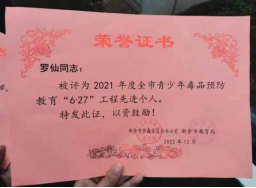 荣誉证书
罗仙同志：
被评为2021年度全市青少年毒品预防
教育“6·27”工程先进个人。
特发此证，以资鼓励！
新余市教育局
2021年12月